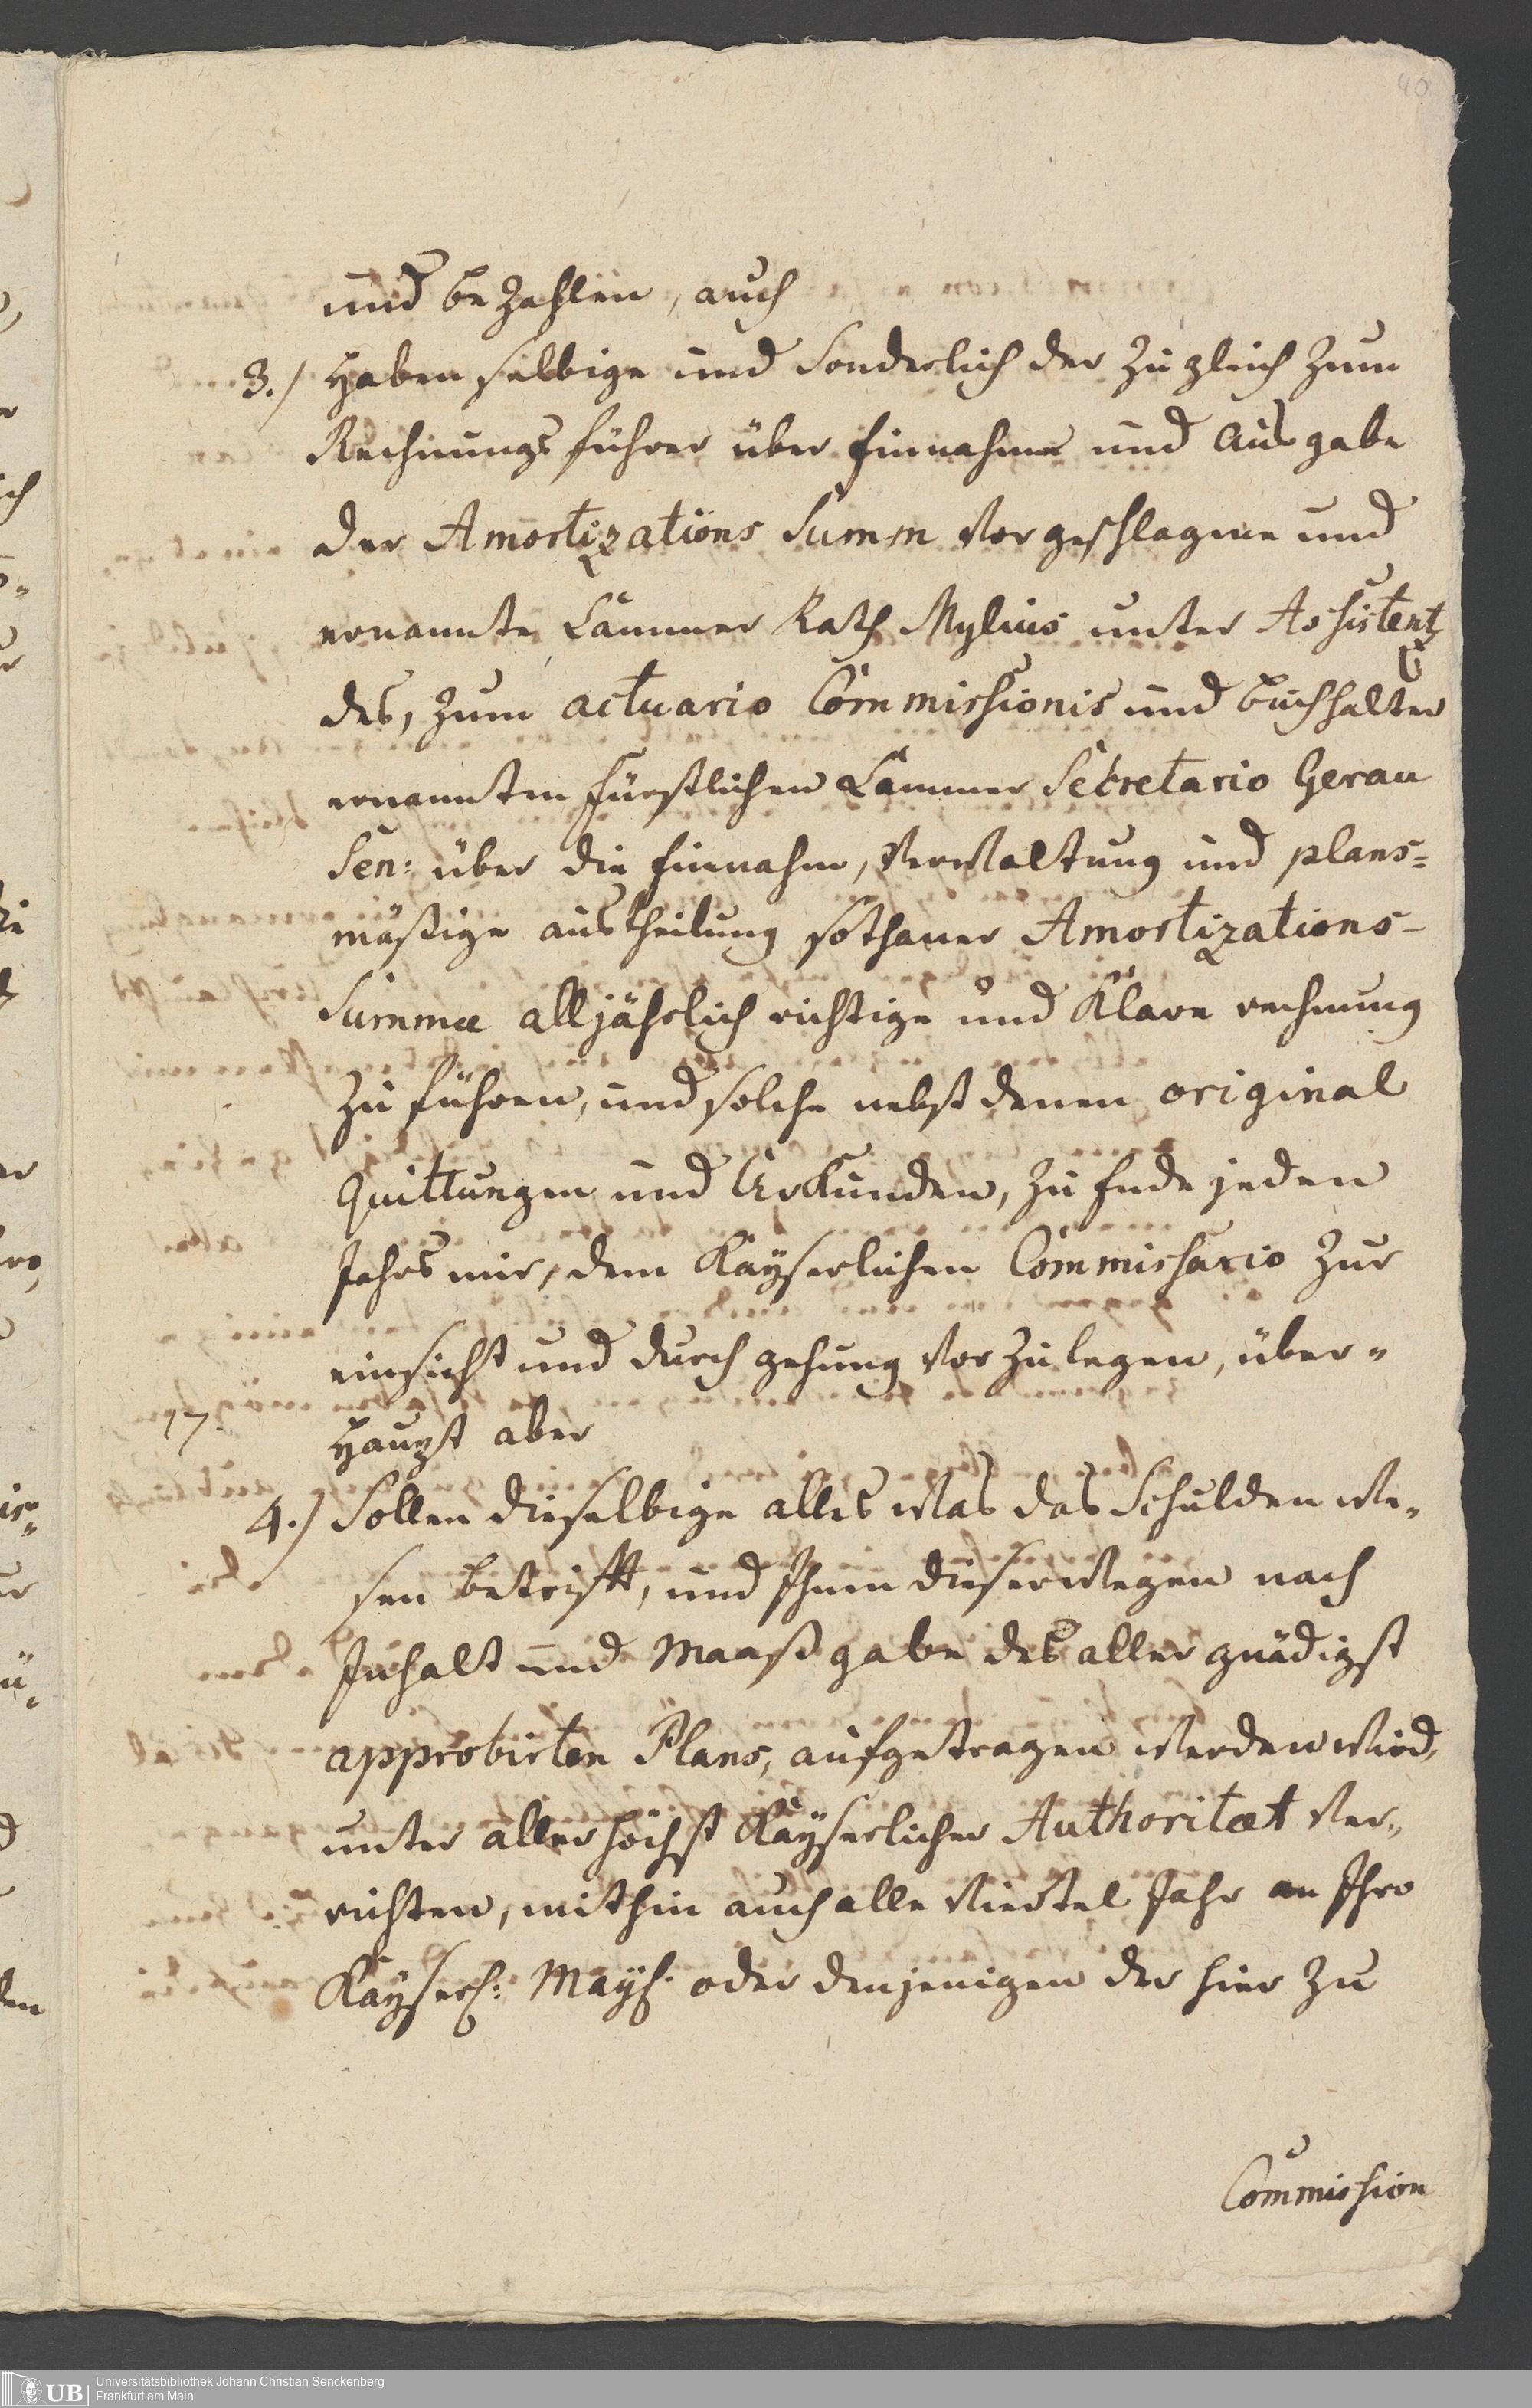 40
und bezahlen, auch
3.) Haben selbige und sonderlich der zugleich zum
Rechnungsführer über Einnahme und Ausgabe
der Amortizations Summ vorgeschlagene und
ernannte Cammer Rath Mylius unter Assistentz
des, zum actuario Commissionis und Buchhalter
ernannten Fürstlichen Cammer Secretario Gerau
Sen: über die Einnahm, Verwaltung und plans=
mäßige austheilung sothaner Amortizations-
Summæ alljährlich richtige und klare rechnung
zu führen, und solche nebst denen original
Quittungen und Urkunden, zu Ende jeden
Jahrs mir, dem Kayserlichen Commissario zur
einsicht und durchgehung vorzulegen, über„
17.
Haupt aber
4.) Sollen dieselbige alles was das Schulden we„
sen betrifft, und Ihnen dieserwegen nach
Inhalt und Maaßgabe des allergnädigst
approbirten Plans, aufgetragen werden wird,
unter allerhöchst Kayserlicher Authoritæt ver„
richten, mithin auch alle Viertel Jahr an Ihro
Kayserl: May. oder denjenigen der hier zu
Commission
UB Universitätsbibliothek Johann Christian Senckenberg
Frankfurt am Main